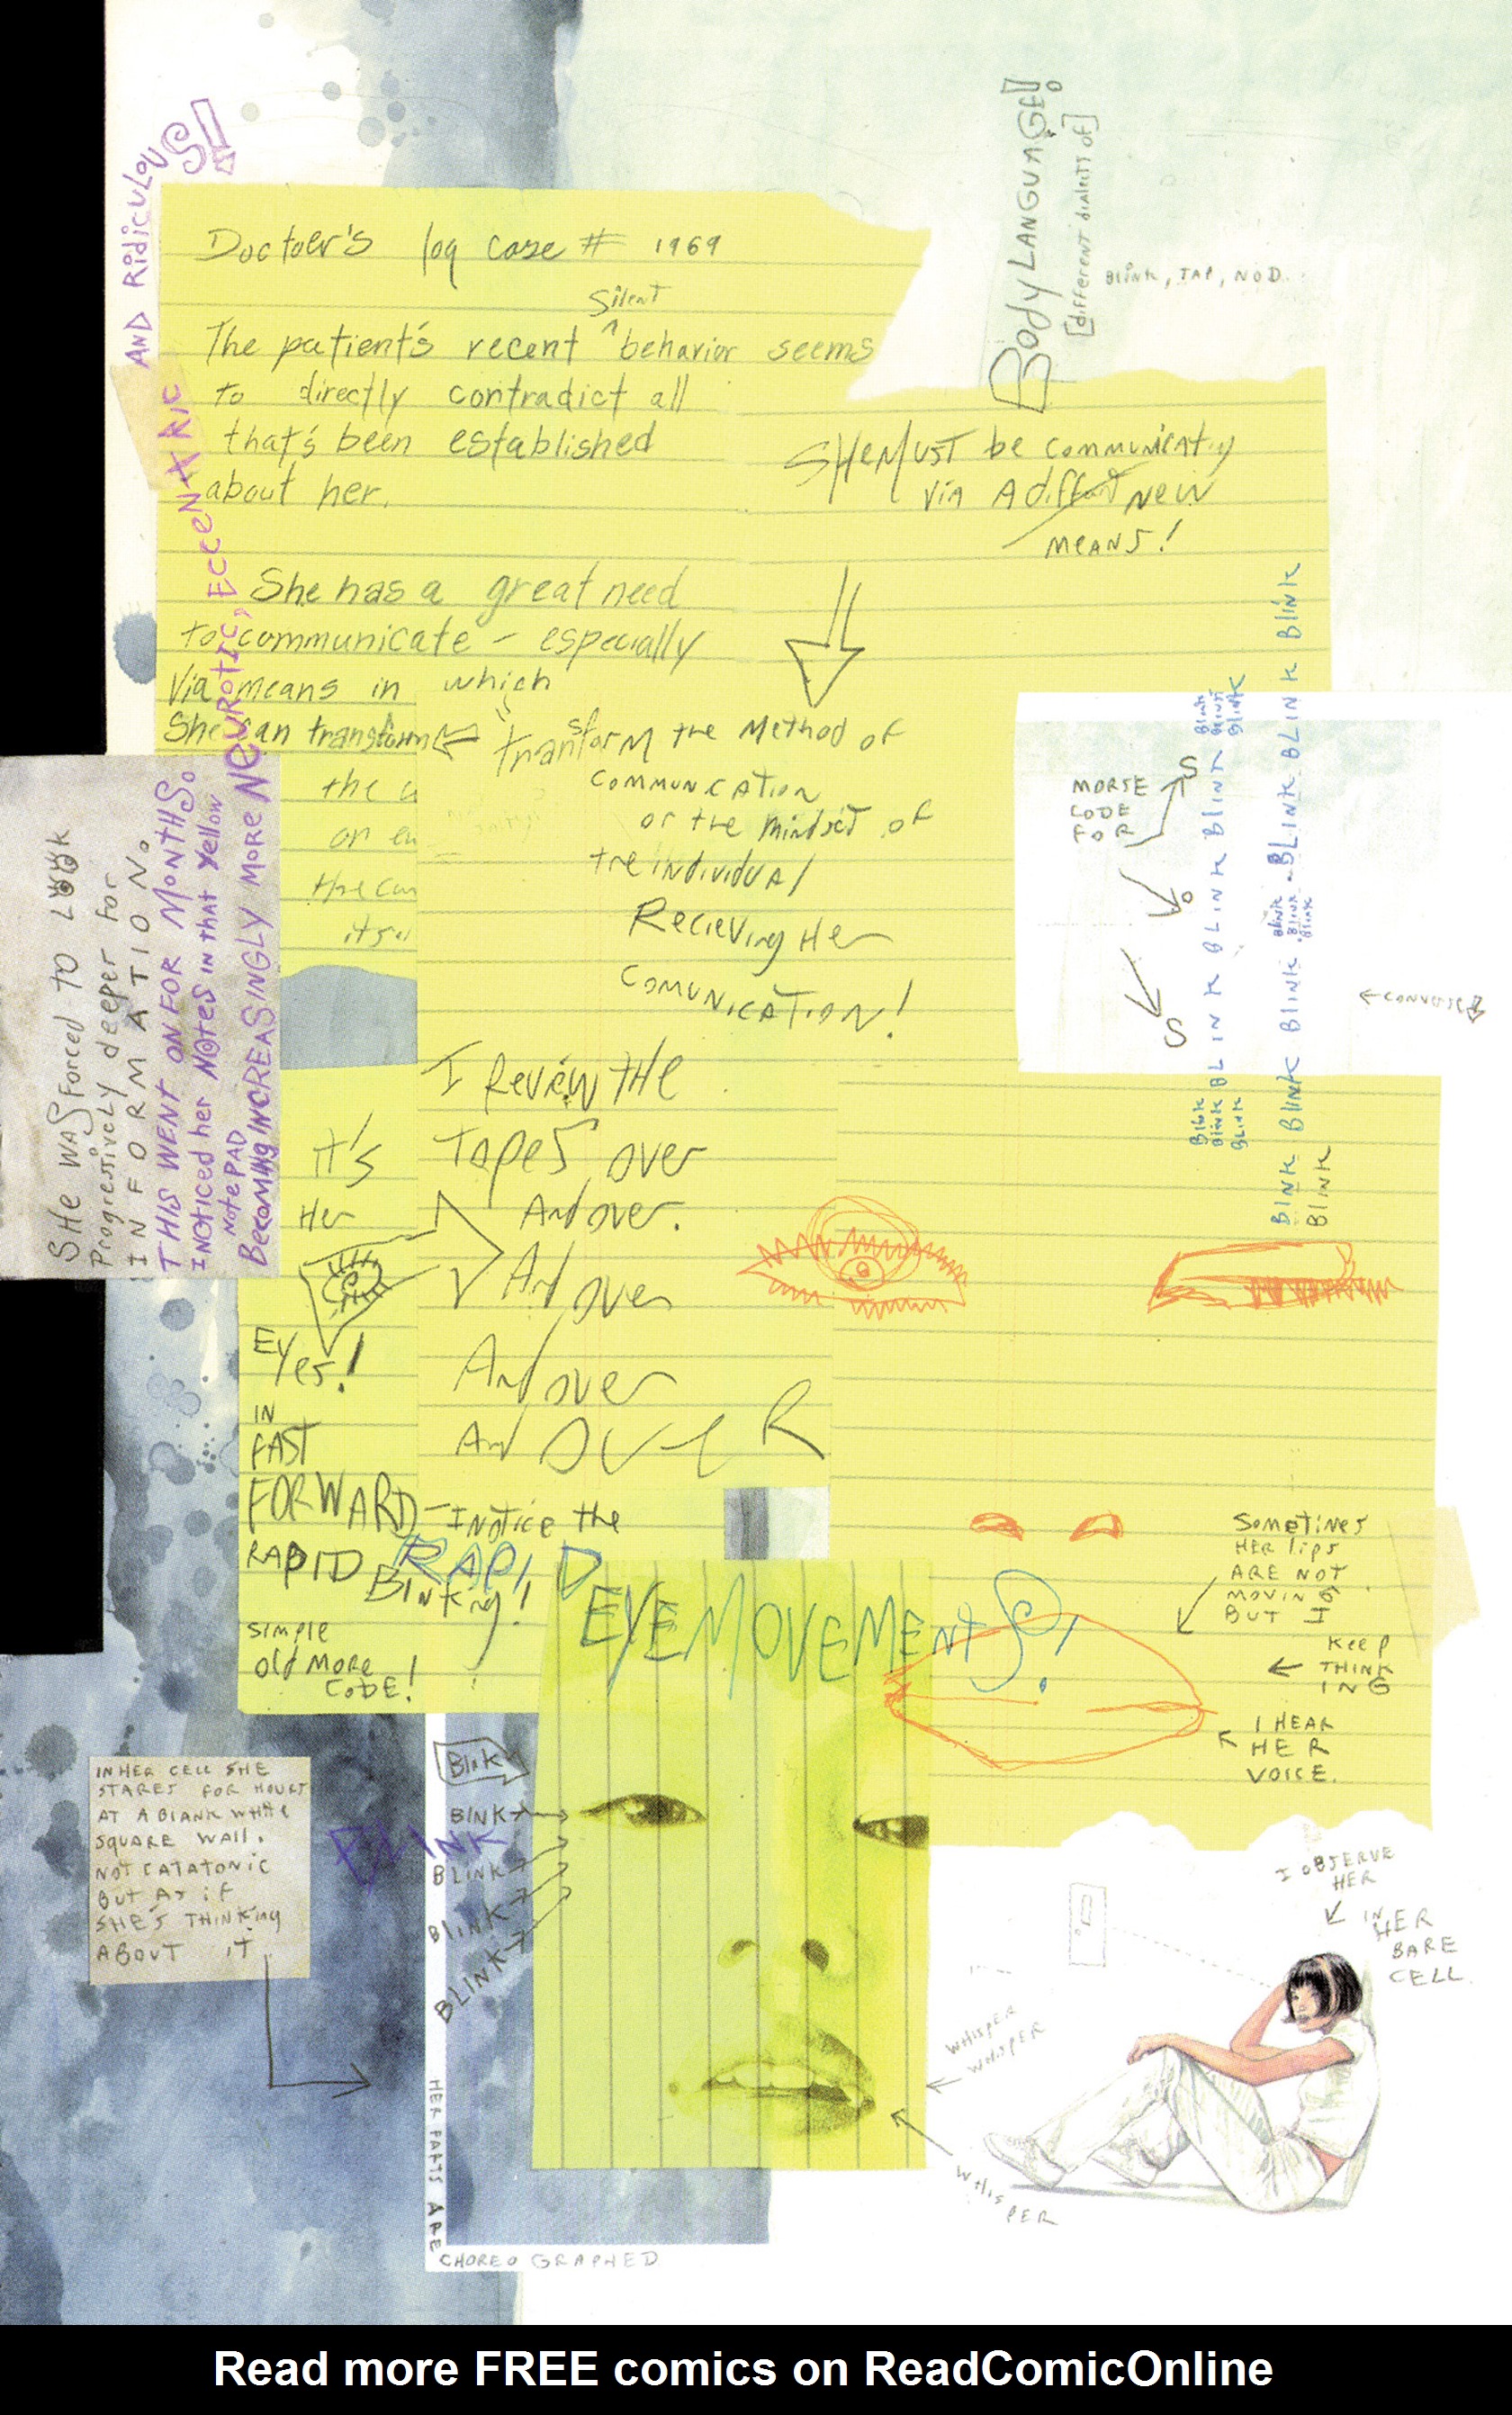 Doctoer's log case # 1969
Silent
The patient's recent ^ behavior seems
to directly contradict all
that's been established
about her.
She has a great need
to communicate - especially
Via means in which
She can transform
the
or
the
BODY LANGUAGE!
[different dialects of]
BLINK, TAP, NOD..
SHE MUST be communicating
via A different NEW
MEANS!
transform the Method of
COMMUNICATION
or the mindset of
the individual
Recieving Her
COMUNICATION!
MORSE
CODE
FOR
S
O
S
Blink
BLINK
BLINK
BLINK BLINK BLINK BLINK
Blink
BLINK
BLINK
BLINK BLINK BLINK BLINK
Blink
Blink
Blink
BLINK BLINK BLINK
BLINK
← CONVERSE
SHE WAS forced TO LOOK
Progressively deeper for
INFORMATION.
THIS WENT ON FOR MONTHS.
I NOTICED her NOTES IN THAT Yellow
NotePAD
Becoming INCREASINGLY MORE NEUROTIC, ECCENTRIC
AND RiDiCULOUS!
I Review THE
TAPES over
And over.
And over
And over
And OVER
It's
Her
EYES!
IN
FAST
FORWARD - I NOTICE the
RAPID Blinking!
RAPID EYE MOVEMENTS!
SIMPLE
Old MORE
CODE!
SOMETIMES
HER lips
ARE NOT
MOVING
BUT I
Keep
THINK
ING
I HEAR
HER
VOICE.
IN HER CELL SHE
STARES FOR HOURS
AT A BLANK WHITE
SQUARE WALL.
NOT CATATONIC
BUT AS if
SHE'S THINKING
ABOUT IT
Blink
BLINK
BLINK
BLINK
BLINK
BLINK
HER PARTS ARE
CHOREOGRAPHED
WHISPER
WHISPER
WHISPER
I OBSERVE
HER
IN HER
BARE
CELL
Read more FREE comics on ReadComicOnline